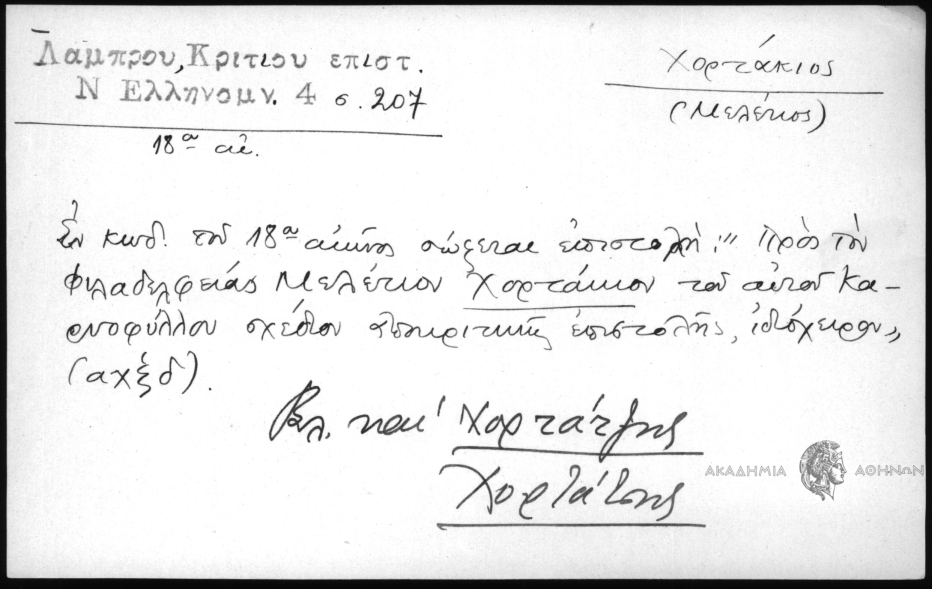 Λαμπρου, Κριτιου επιστ.
Ν Ελληνομν. 4 σ. 207
18ᵅ αἰ.
Χορτάκιος
(Μελέτιος)
Ἐν κωδ. τοῦ 18ᵅ αἰῶνος σώζεται ἐπιστολή: " Πρὸς τὸν
Φιλαδελφείας Μελέτιον Χορτάκιον τοῦ αὐτοῦ Κα-
ρυοφύλλου σχέδιον ἀποκριτικῆς ἐπιστολῆς, ἰδιόχειρον"
(αχξδ).
Βλ. και Χορτάτζης
Χορτάτσης
ΑΚΑΔΗΜΙΑ ΑΘΗΝΩΝ